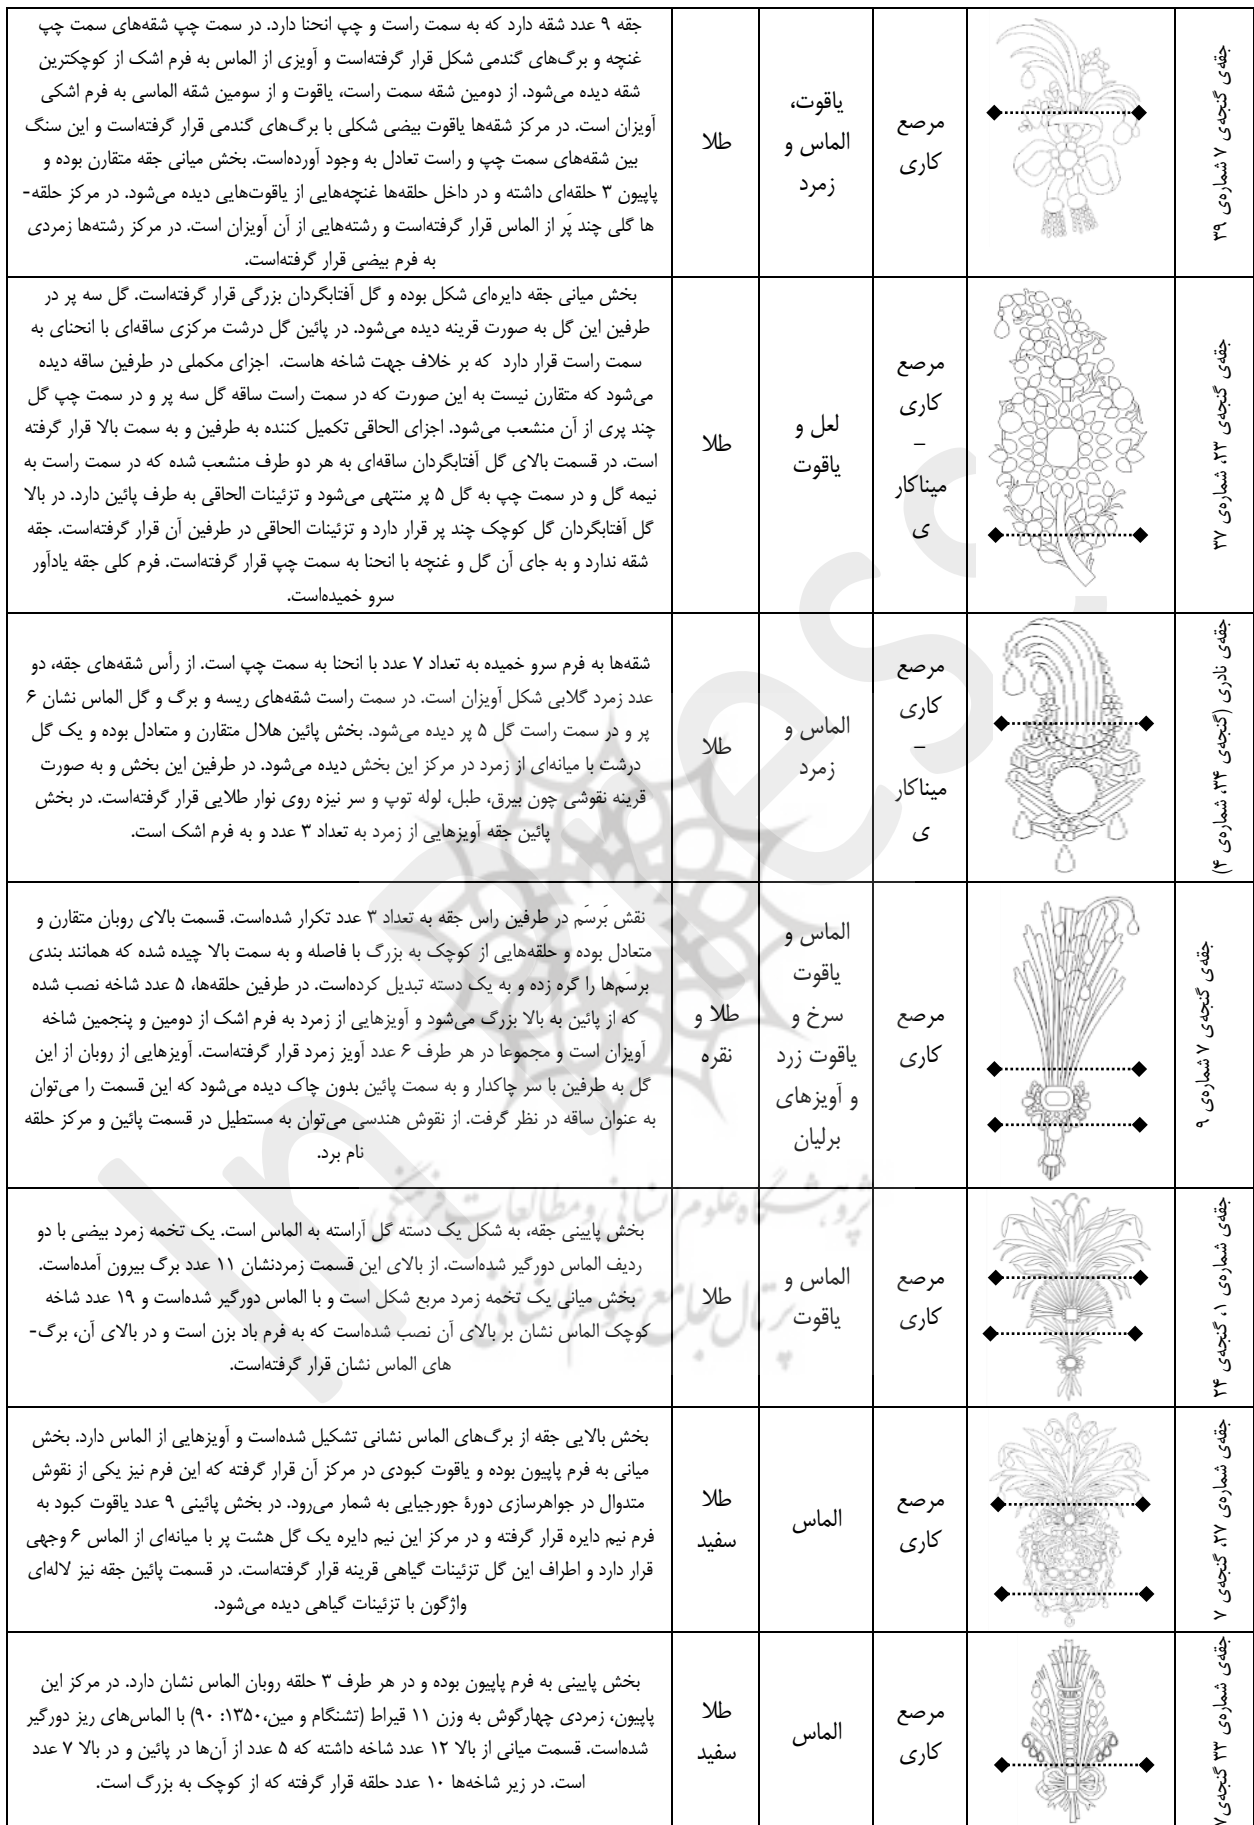 جقه‌ی گنجه‌ی ۷ شماره‌ی ۳۹
مرصع
کاری
یاقوت،
الماس و
زمرد
طلا
جقه ۹ عدد شقه دارد که به سمت راست و چپ انحنا دارد. در سمت چپ شقه‌های سمت چپ
غنچه و برگ‌های گندمی شکل قرار گرفته‌است و آویزی از الماس به فرم اشک از کوچکترین
شقه دیده می‌شود. از دومین شقه سمت راست، یاقوت و از سومین شقه الماسی به فرم اشکی
آویزان است. در مرکز شقه‌ها یاقوت بیضی شکلی با برگ‌های گندمی قرار گرفته‌است و این سنگ
بین شقه‌های سمت چپ و راست تعادل به وجود آورده‌است. بخش میانی جقه متقارن بوده و
پاپیون ۳ حلقه‌ای داشته و در داخل حلقه‌ها غنچه‌هایی از یاقوت‌هایی دیده می‌شود. در مرکز حلقه-
ها گلی چند پَر از الماس قرار گرفته‌است و رشته‌هایی از آن آویزان است. در مرکز رشته‌ها زمردی
به فرم بیضی قرار گرفته‌است.
جقه‌ی گنجه‌ی ۲۳، شماره‌ی ۳۷
مرصع
کاری
–
میناکار
ی
لعل و
یاقوت
طلا
بخش میانی جقه دایره‌ای شکل بوده و گل آفتابگردان بزرگی قرار گرفته‌است. گل سه پر در
طرفین این گل به صورت قرینه دیده می‌شود. در پائین گل درشت مرکزی ساقه‌ای با انحنای به
سمت راست قرار دارد  که بر خلاف جهت شاخه هاست.  اجزای مکملی در طرفین ساقه دیده
می‌شود که متقارن نیست به این صورت که در سمت راست ساقه گل سه پر و در سمت چپ گل
چند پری از آن منشعب می‌شود. اجزای الحاقی تکمیل کننده به طرفین و به سمت بالا قرار گرفته
است. در قسمت بالای گل آفتابگردان ساقه‌ای به هر دو طرف منشعب شده که در سمت راست به
نیمه گل و در سمت چپ به گل ۵ پر منتهی می‌شود و تزئینات الحاقی به طرف پائین دارد. در بالا
گل آفتابگردان گل کوچک چند پر قرار دارد و تزئینات الحاقی در طرفین آن قرار گرفته‌است. جقه
شقه ندارد و به جای آن گل و غنچه با انحنا به سمت چپ قرار گرفته‌است. فرم کلی جقه یادآور
سرو خمیده‌است.
جقه‌ی نادری (گنجه‌ی ۳۴، شماره‌ی ۴)
مرصع
کاری
–
میناکار
ی
الماس و
زمرد
طلا
شقه‌ها به فرم سرو خمیده به تعداد ۷ عدد با انحنا به سمت چپ است. از رأس شقه‌های جقه، دو
عدد زمرد گلابی شکل آویزان است. در سمت راست شقه‌های ریسه و برگ و گل الماس نشان ۶
پر و در سمت راست گل ۵ پر دیده می‌شود. بخش پائین هلال متقارن و متعادل بوده و یک گل
درشت با میانه‌ای از زمرد در مرکز این بخش دیده می‌شود. در طرفین این بخش و به صورت
قرینه نقوشی چون بیرق، طبل، لوله توپ و سر نیزه روی نوار طلایی قرار گرفته‌است. در بخش
پائین جقه آویزهایی از زمرد به تعداد ۳ عدد و به فرم اشک است.
جقه‌ی گنجه‌ی ۷ شماره‌ی ۹
مرصع
کاری
الماس و
یاقوت
سرخ و
یاقوت زرد
و آویزهای
برلیان
طلا و
نقره
نقش بَرسَم در طرفین راس جقه به تعداد ۳ عدد تکرار شده‌است. قسمت بالای روبان متقارن و
متعادل بوده و حلقه‌هایی از کوچک به بزرگ با فاصله و به سمت بالا چیده شده که همانند بندی
برسَم‌ها را گره زده و به یک دسته تبدیل کرده‌است. در طرفین حلقه‌ها، ۵ عدد شاخه نصب شده
که از پائین به بالا بزرگ می‌شود و آویزهایی از زمرد به فرم اشک از دومین و پنجمین شاخه
آویزان است و مجموعا در هر طرف ۶ عدد آویز زمرد قرار گرفته‌است. آویزهایی از روبان از این
گل به طرفین با سر چاکدار و به سمت پائین بدون چاک دیده می‌شود که این قسمت را می‌توان
به عنوان ساقه در نظر گرفت. از نقوش هندسی می‌توان به مستطیل در قسمت پائین و مرکز حلقه
نام برد.
جقه‌ی شماره‌ی ۱، گنجه‌ی ۲۴
مرصع
کاری
الماس و
یاقوت
طلا
بخش پایینی جقه، به شکل یک دسته گل آراسته به الماس است. یک تخمه زمرد بیضی با دو
ردیف الماس دورگیر شده‌است. از بالای این قسمت زمردنشان ۱۱ عدد برگ بیرون آمده‌است.
بخش میانی یک تخمه زمرد مربع شکل است و با الماس دورگیر شده‌است و ۱۹ عدد شاخه
کوچک الماس نشان بر بالای آن نصب شده‌است که به فرم باد بزن است و در بالای آن، برگ-
های الماس نشان قرار گرفته‌است.
جقه‌ی شماره‌ی ۲۷، گنجه‌ی ۷
مرصع
کاری
الماس
طلا
سفید
بخش بالایی جقه از برگ‌های الماس نشانی تشکیل شده‌است و آویزهایی از الماس دارد. بخش
میانی به فرم پاپیون بوده و یاقوت کبودی در مرکز آن قرار گرفته که این فرم نیز یکی از نقوش
متدوال در جواهرسازی دورهٔ جورجیایی به شمار می‌رود. در بخش پائینی ۹ عدد یاقوت کبود به
فرم نیم دایره قرار گرفته و در مرکز این نیم دایره یک گل هشت پر با میانه‌ای از الماس ۶ وجهی
قرار دارد و اطراف این گل تزئینات گیاهی قرینه قرار گرفته‌است. در قسمت پائین جقه نیز لاله‌ای
واژگون با تزئینات گیاهی دیده می‌شود.
جقه‌ی شماره‌ی ۳۳ گنجه‌ی۷
مرصع
کاری
الماس
طلا
سفید
بخش پایینی به فرم پاپیون بوده و در هر طرف ۳ حلقه روبان الماس نشان دارد. در مرکز این
پاپیون، زمردی چهارگوش به وزن ۱۱ قیراط (تشنگام و مین،۱۳۵۰: ۹۰) با الماس‌های ریز دورگیر
شده‌است. قسمت میانی از بالا ۱۲ عدد شاخه داشته که ۵ عدد از آن‌ها در پائین و در بالا ۷ عدد
است. در زیر شاخه‌ها ۱۰ عدد حلقه قرار گرفته که از کوچک به بزرگ است.
پژوهشگاه علوم انسانی و مطالعات فرهنگی
پرتال جامع علوم انسانی
In Press